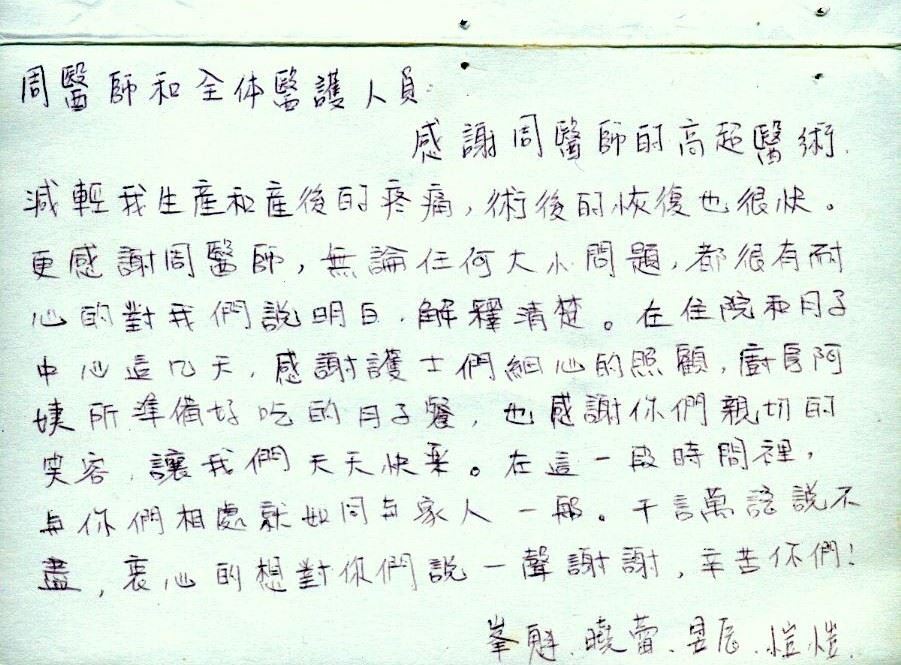 周醫師和全体醫護人員:
感謝周醫師的高超醫術.
減輕我生產和產後的疼痛,術後的恢復也很快。
更感謝周醫師,無論任何大小問題,都很有耐
心的對我們說明白.解釋清楚。在住院和月子
中心這几天,感謝護士們細心的照顧,廚房阿
姨所準備好吃的月子餐,也感謝你們親切的
笑容,讓我們天天快乐。在這一段時間裡,
与你們相處就如同与家人一般。千言萬語說不
盡,衷心的想對你們說一聲謝謝,辛苦你們!
峯魁.曉蕾.昱辰.愷愷.